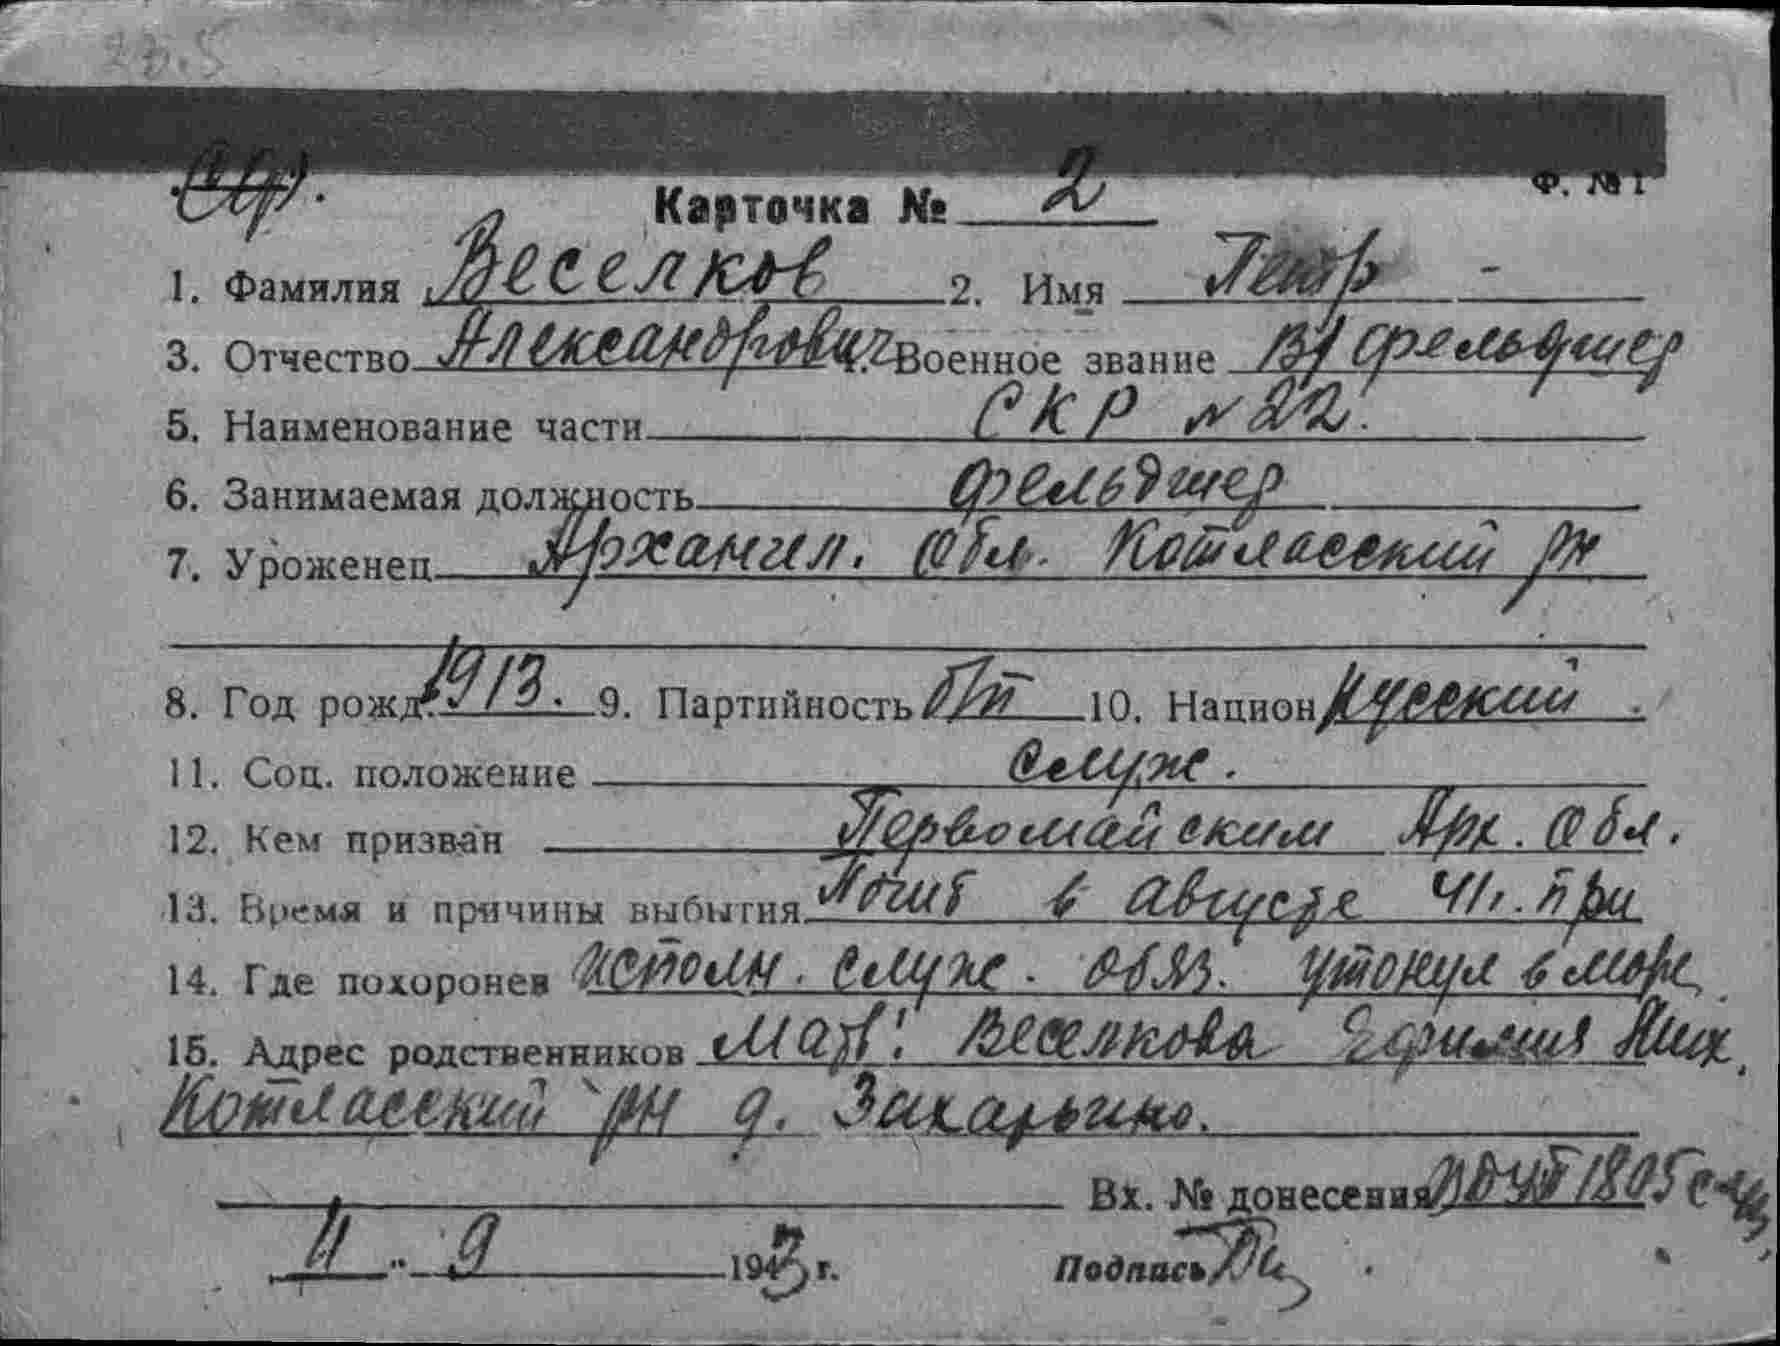 26.5
Ф. № 1
Карточка № 2
1. Фамилия Веселков 2. Имя Петр
3. Отчество Александрович 4. Военное звание В/фельдшер
5. Наименование части СКР № 22.
6. Занимаемая должность фельдшер
7. Уроженец Архангел. обл. Котласский рн
8. Год рожд. 1913. 9. Партийность б/п 10. Национ русский.
11. Соц. положение служ.
12. Кем призван Первомайским Арх. обл.
13. Время и причины выбытия Погиб в августе 41г. при
14. Где похоронен исполн. служ. обяз. утонул в море
15. Адрес родственников мать: Веселкова Ефимия Мих.
Котласский рн д. Захарьино.
Вх. № донесения 1805
11 " 9 1943 г. Подпись